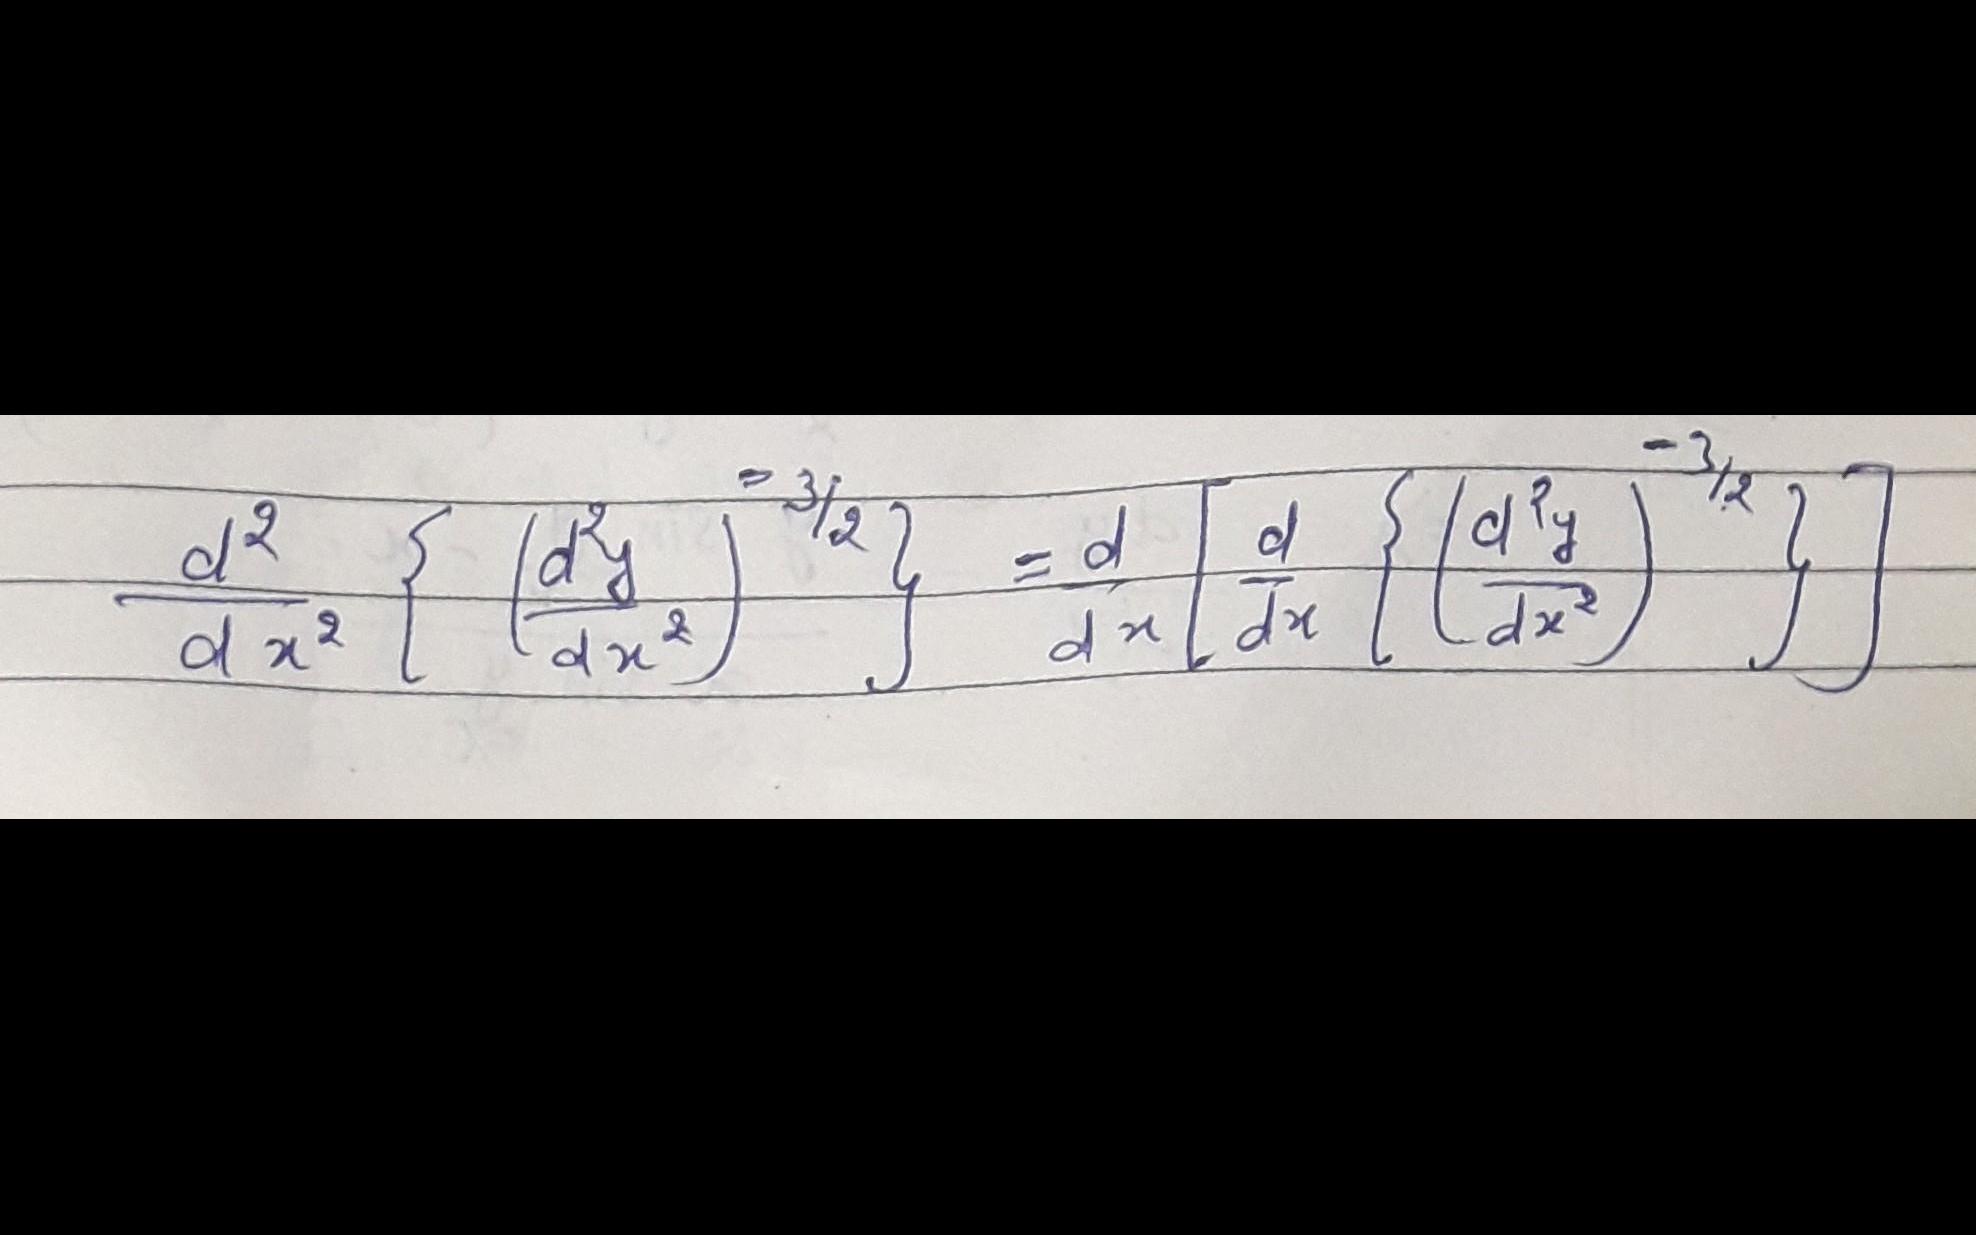 d²/dx² { (d²y/dx²)^{-3/2} } = d/dx [ d/dx { (d²y/dx²)^{-3/2} } ]